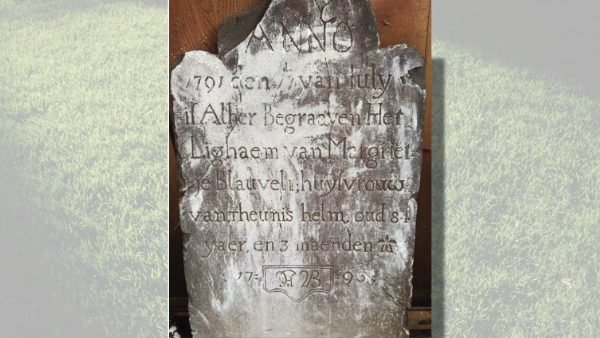 ANNO
1791 den van Iuly
if Alher Begraeven Het
Lighaem van Margriet
je Blauvelt, huyſvrouw
van, Theunis helm, oud 84
yaer, en 3 maenden
17